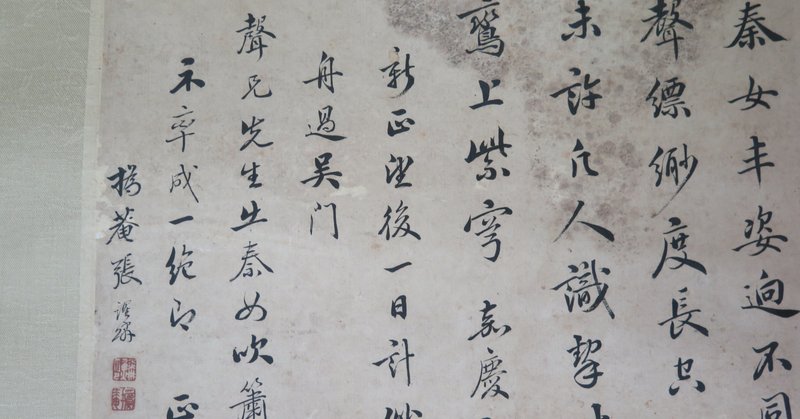 秦女丰姿迥不同
聲縹緲度長空
未許凡人識挈
鸞上紫穹 嘉慶
新正
後一日計
舟過吳門
聲兄先生出秦女吹簫
示率成一絶即 正
橋菴張